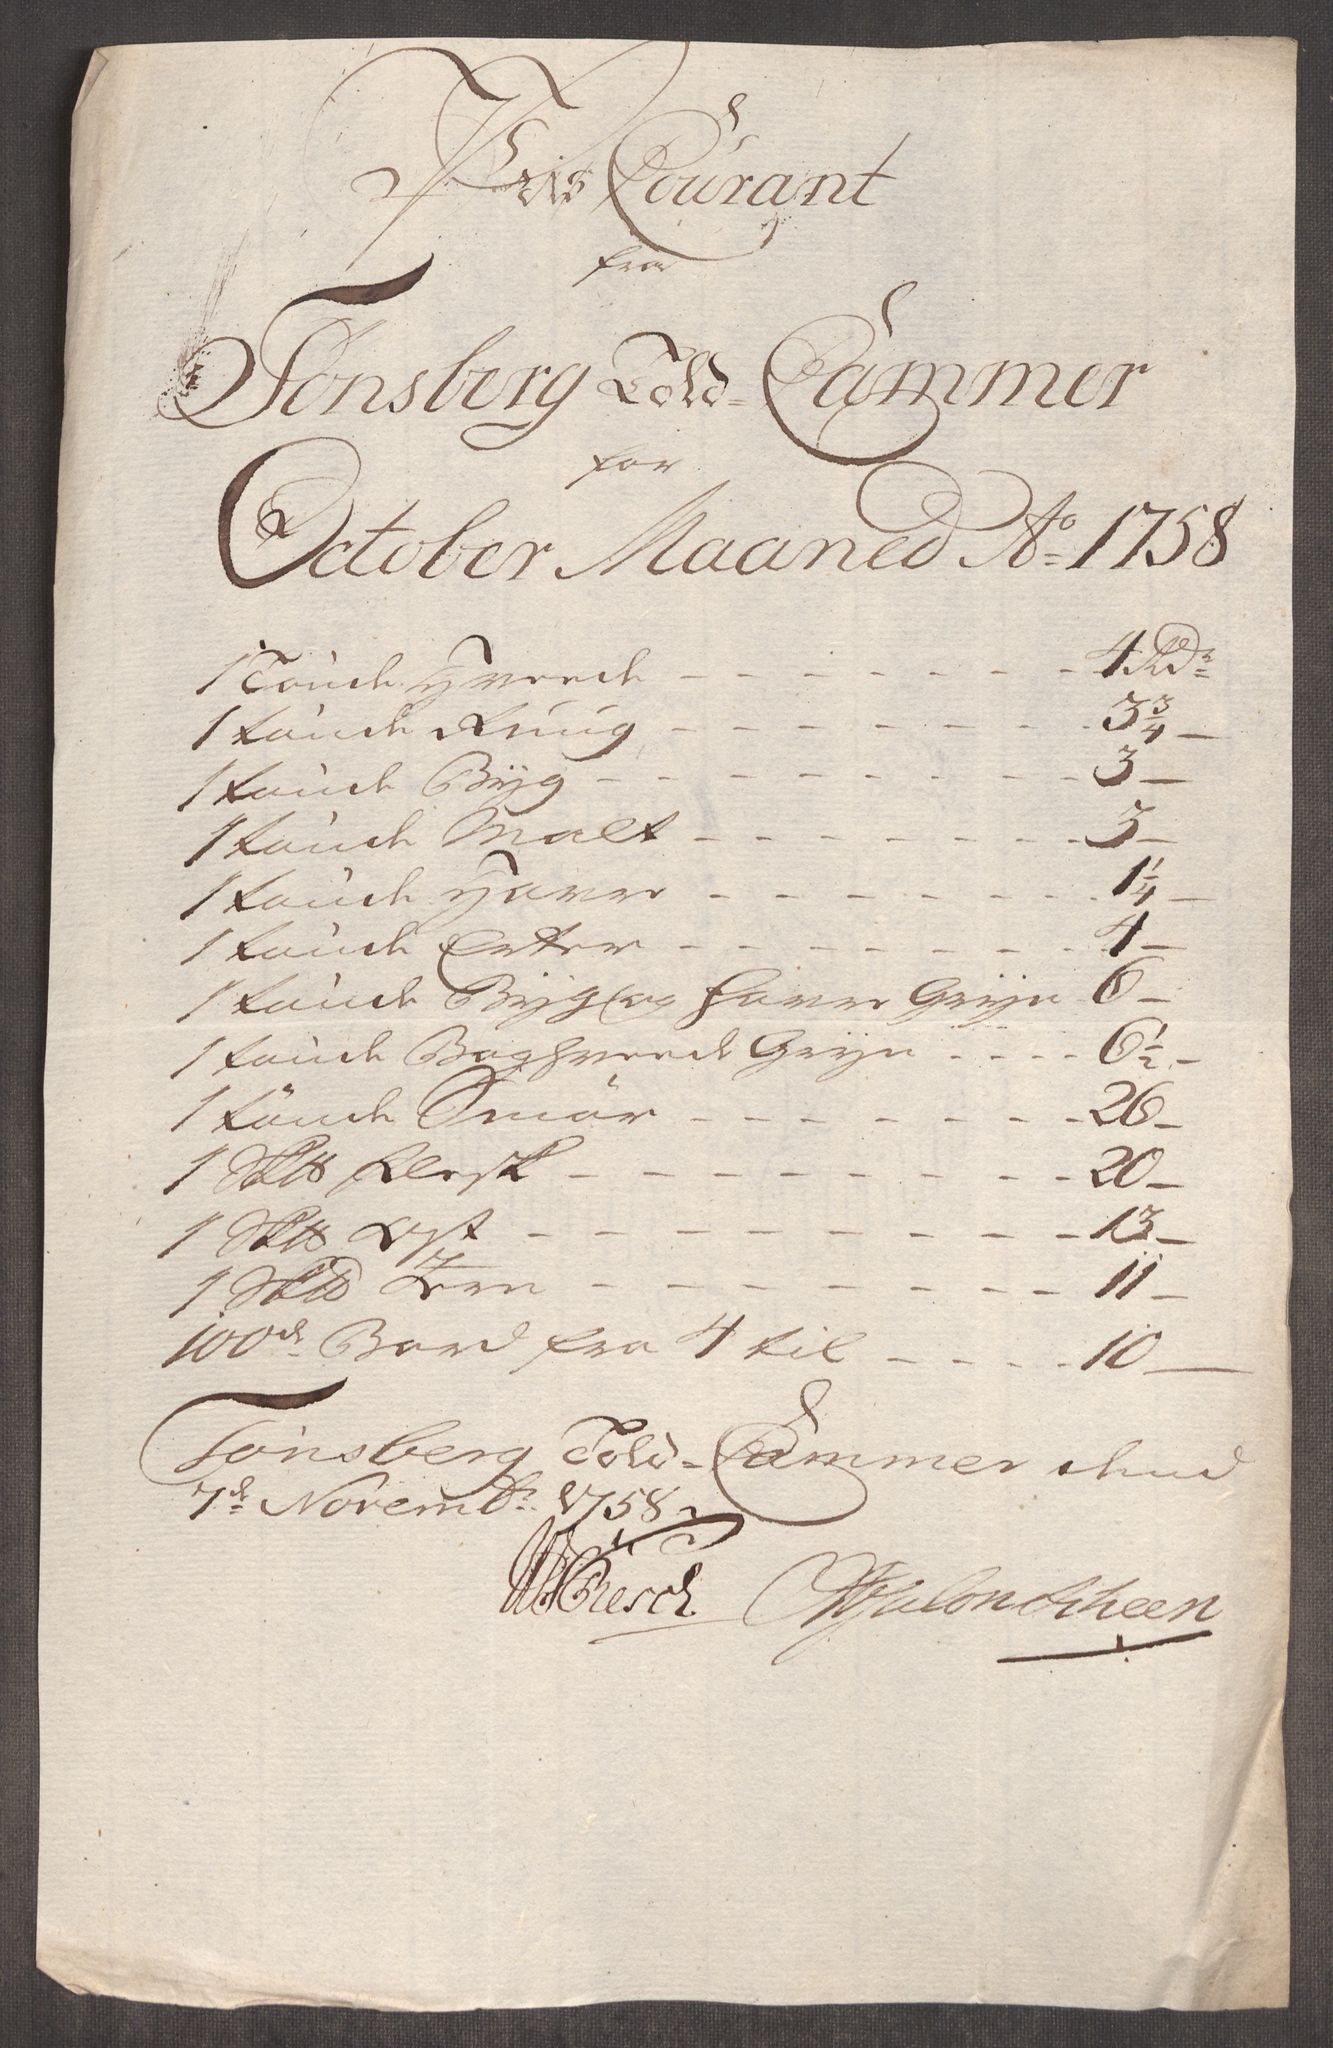 Pris Courant
fra
Tønsberg Told-Cammer
for
October Maaned Ao 1758
1 Tønde Hveede - - - - - - - 4 Rdr
1 tønde Ruug - - - - - - - 3 3/4 -
1 tønde Byg - - - - - - - 3 -
1 tønde Malt - - - - - - - 3 -
1 tønde Havre - - - - - - - 1 1/4 -
1 tønde Erter - - - - - - - 4 -
1 tønde Byg og Havre Gryn 6 -
1 tønde Boghveede Gryn - - - - 6 1/2 -
1 tønde Smør - - - - - - - 26 -
1 Sk℔ Flesk - - - - - - - 20 -
1 Sk℔ Ost - - - - - - - 13 -
1 Sk℔ Jern - - - - - - - 11 -
100de Bord fra 4 til - - - - 10 -
Tønsberg Told-Cammer dend
7de Novembr 1758